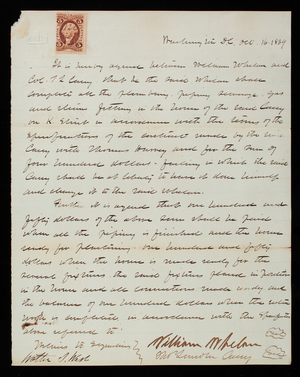 Washington DC Oct 16 1869
It is hereby agreed between William Whelan and
Col T L Casey that he the said Whelan shall
complete all the plumbing, piping sewerage, gas
and steam fitting in the house of the said Casey
on K Street in accordance with the terms of the
specifications of the contract made by the
Casey with Thomas and for the sum of
four hundred dollars: failing in which the said
Casey should be at liberty to have it done himself
and charge it to the said Whelan.
Further it is agreed that one hundred and
fifty dollars of the above sum should be paid
when all the piping is finished and the house
ready for plastering, one hundred and fifty
dollars when the house is made ready for the
several fixtures the said fixtures placed in position
in the house and all connections made and
the balance of one hundred dollars when the entire
work is completed in accordance with the
above referred to
William Whelan
Thos Lincoln Casey